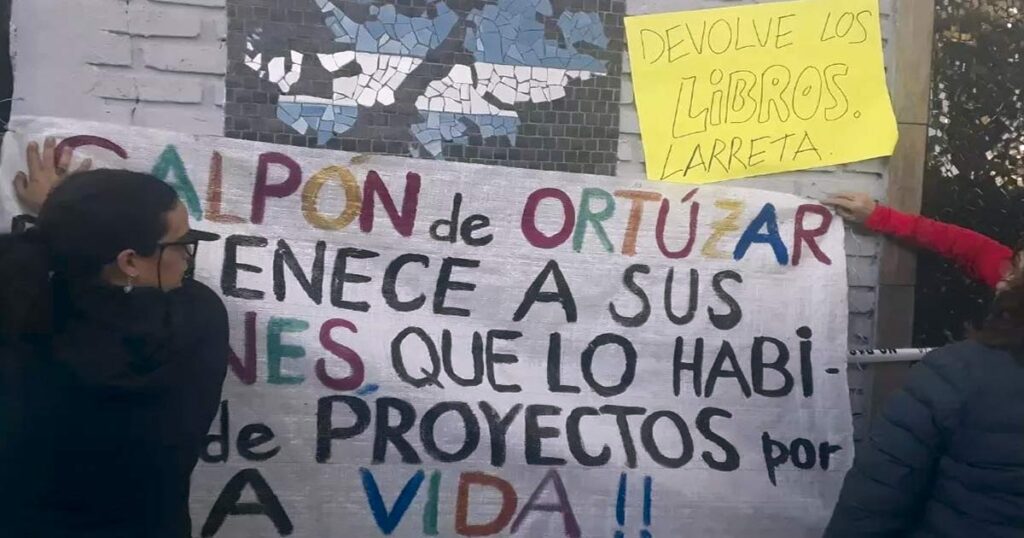 DEVOLVE LOS
LIBROS.
LARRETA.
GALPÓN de ORTÚZAR
TENECE A SUS
NES QUE LO HABI-
de PROYECTOS por
A VIDA !!